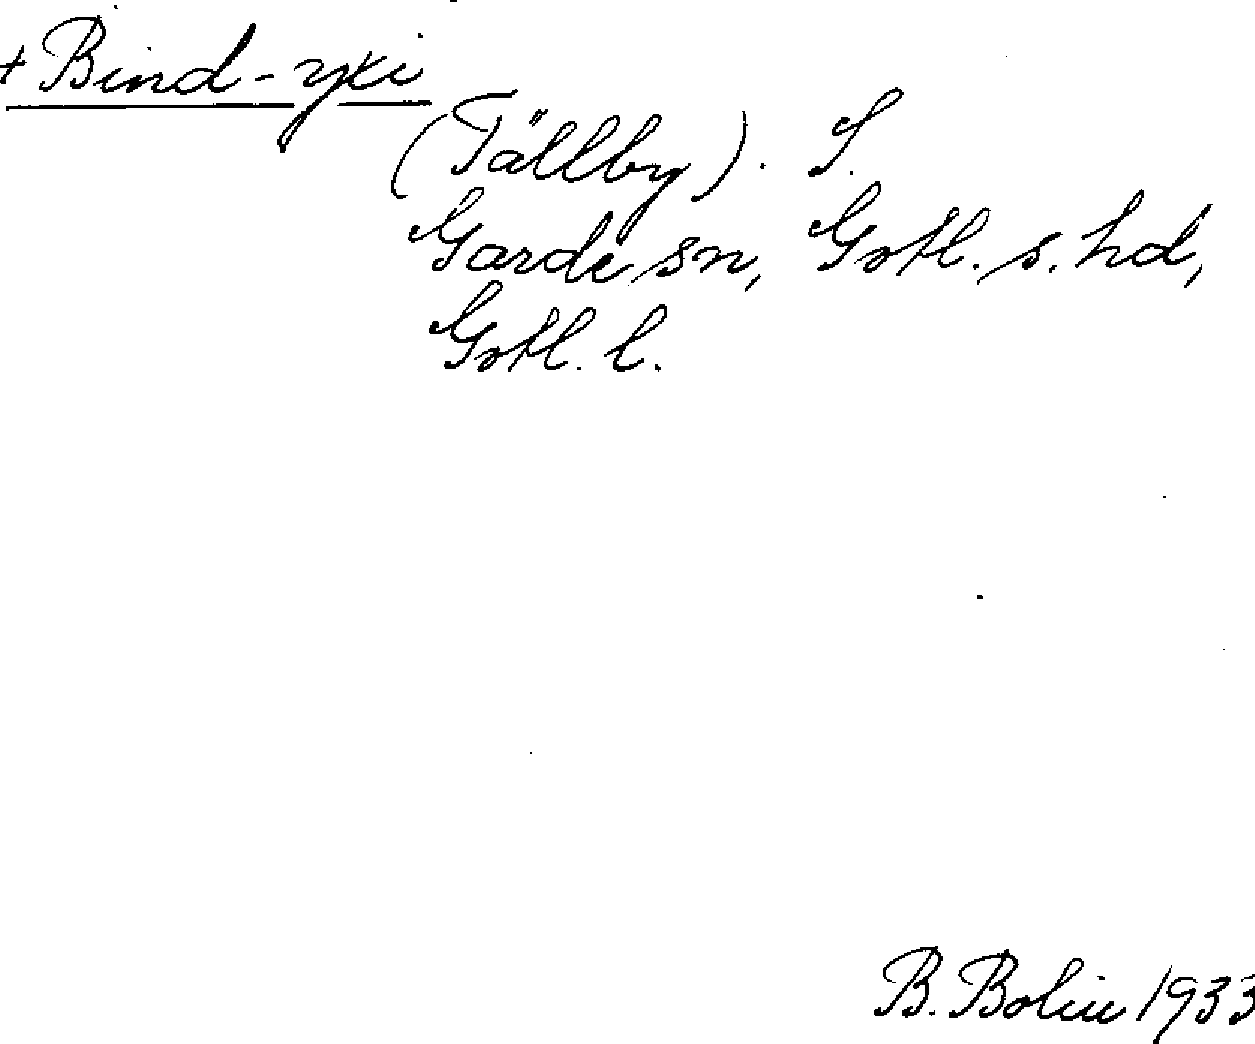 + Bind-yki
(Tällby). S.
Garde sn, Gotl. s. hd,
Gotl. l.
B. Bolin 1933